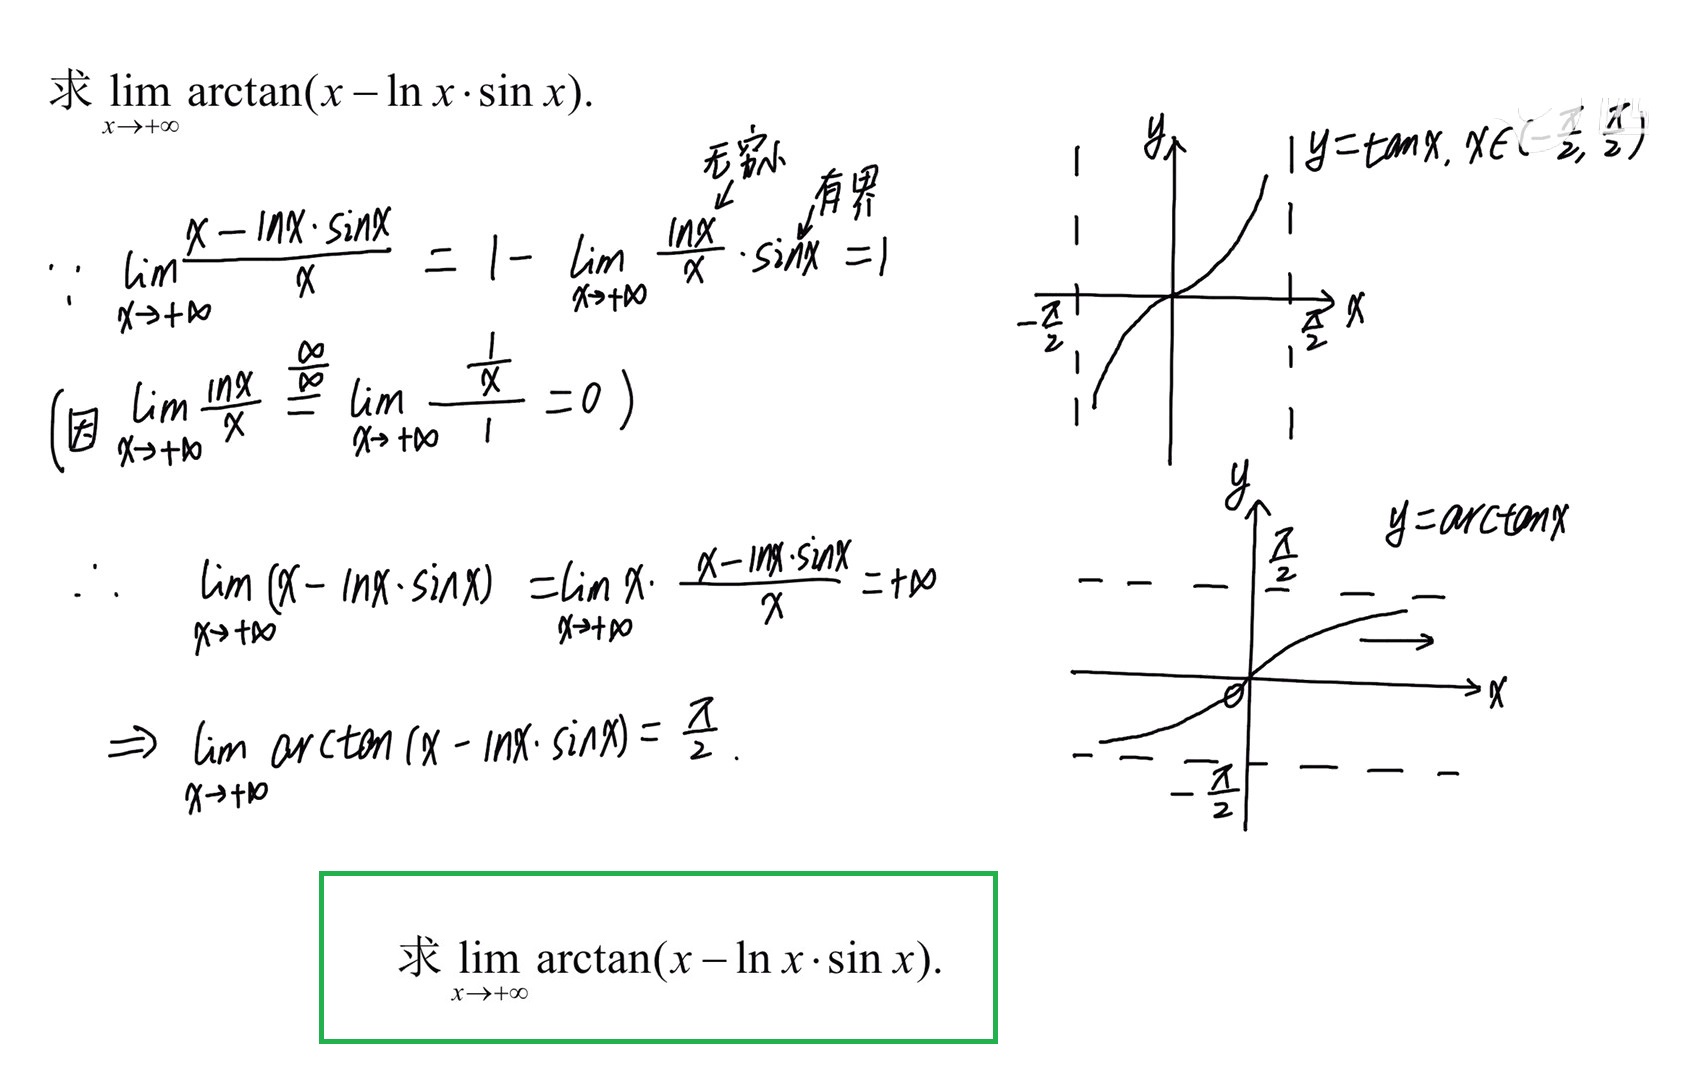 求 lim x→+∞ arctan(x − ln x · sin x).
无穷小
有界
∵ lim x→+∞ (x − lnx · sinx)/x = 1 − lim x→+∞ lnx/x · sinx = 1
(因 lim x→+∞ lnx/x ∞/∞ = lim x→+∞ (1/x)/1 = 0)
∴ lim x→+∞ (x − lnx · sinx) = lim x→+∞ x · (x − lnx · sinx)/x = +∞
⇒ lim x→+∞ arctan(x − lnx · sinx) = π/2.
y
y = tanx, x∈(−π/2, π/2)
−π/2
π/2
x
y
π/2
y = arctanx
O
x
−π/2
求 lim x→+∞ arctan(x − ln x · sin x).